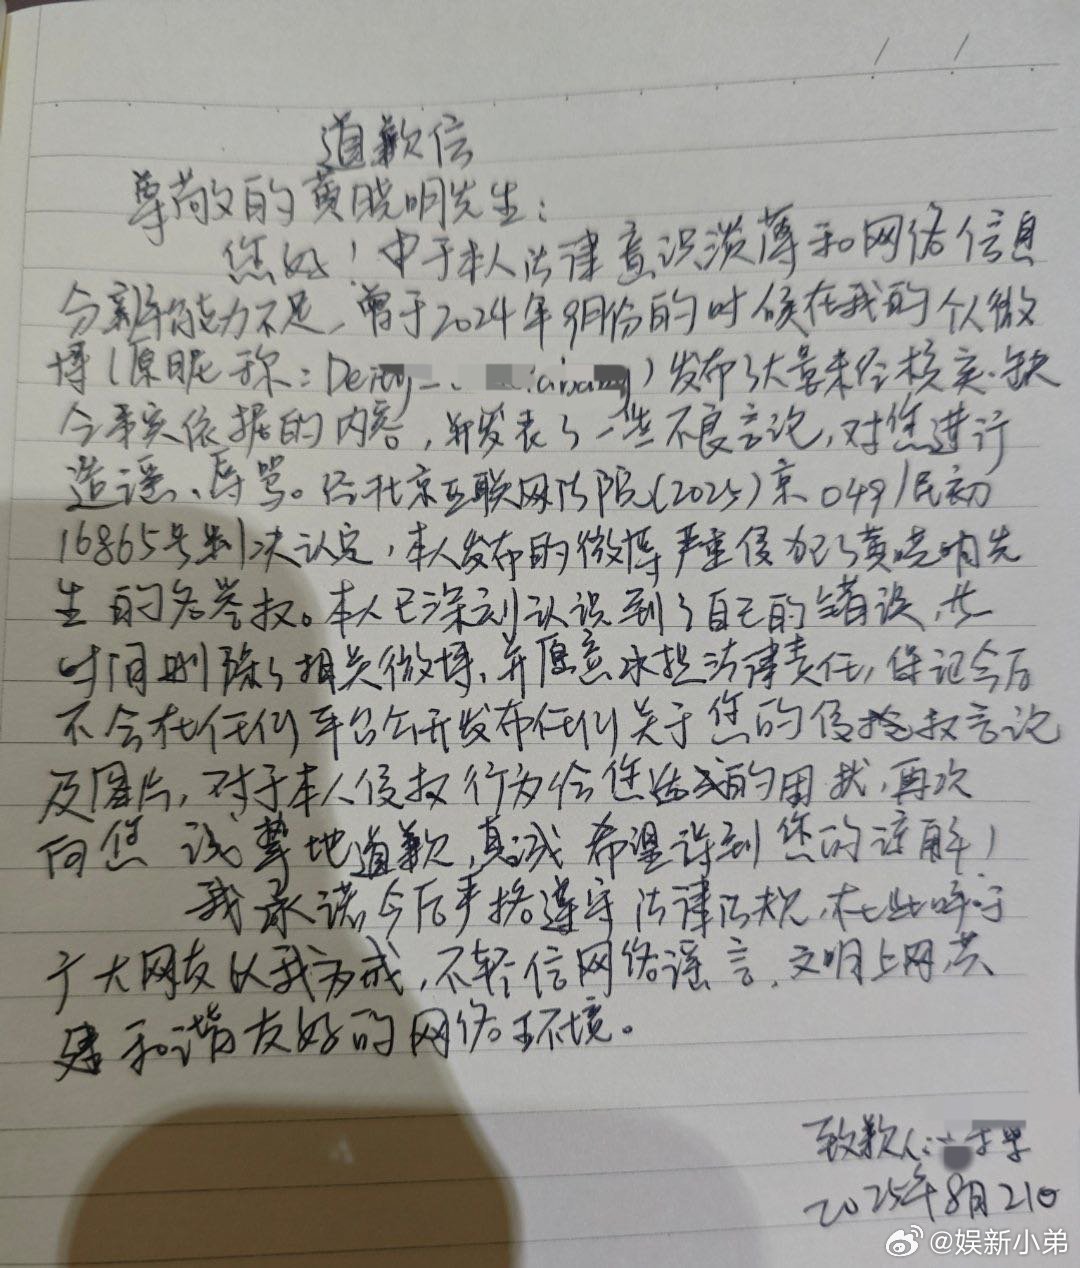 道歉信
尊敬的黄晓明先生：
您好！由于本人法律意识淡薄和网络信息
分辨能力不足，曾于2024年9月份的时候在我的个微
博（原昵称：Deity_ ）发布了大量未经核实、缺
今事实依据的内容，并发表了一些不良言论，对您进行
造谣、辱骂。经北京互联网法院（2025）京0491民初
16865号判决认定，本人发布的微博严重侵犯了黄晓明先
生的名誉权。本人已深刻认识到了自己的错误，
时间删除了相关微博，并愿意承担法律责任，保证今后
不会在任何平台公开发布任何关于您的侵权言论
及图片，对于本人侵权行为给您造成的困扰，再次
向您诚挚地道歉，真诚希望得到您的谅解！
我承诺今后严格遵守法律法规，在此呼吁
广大网友以我为戒，不轻信网络谣言，文明上网共
建和谐友好的网络环境。
致歉人：
2025年8月21日
@娱新小弟